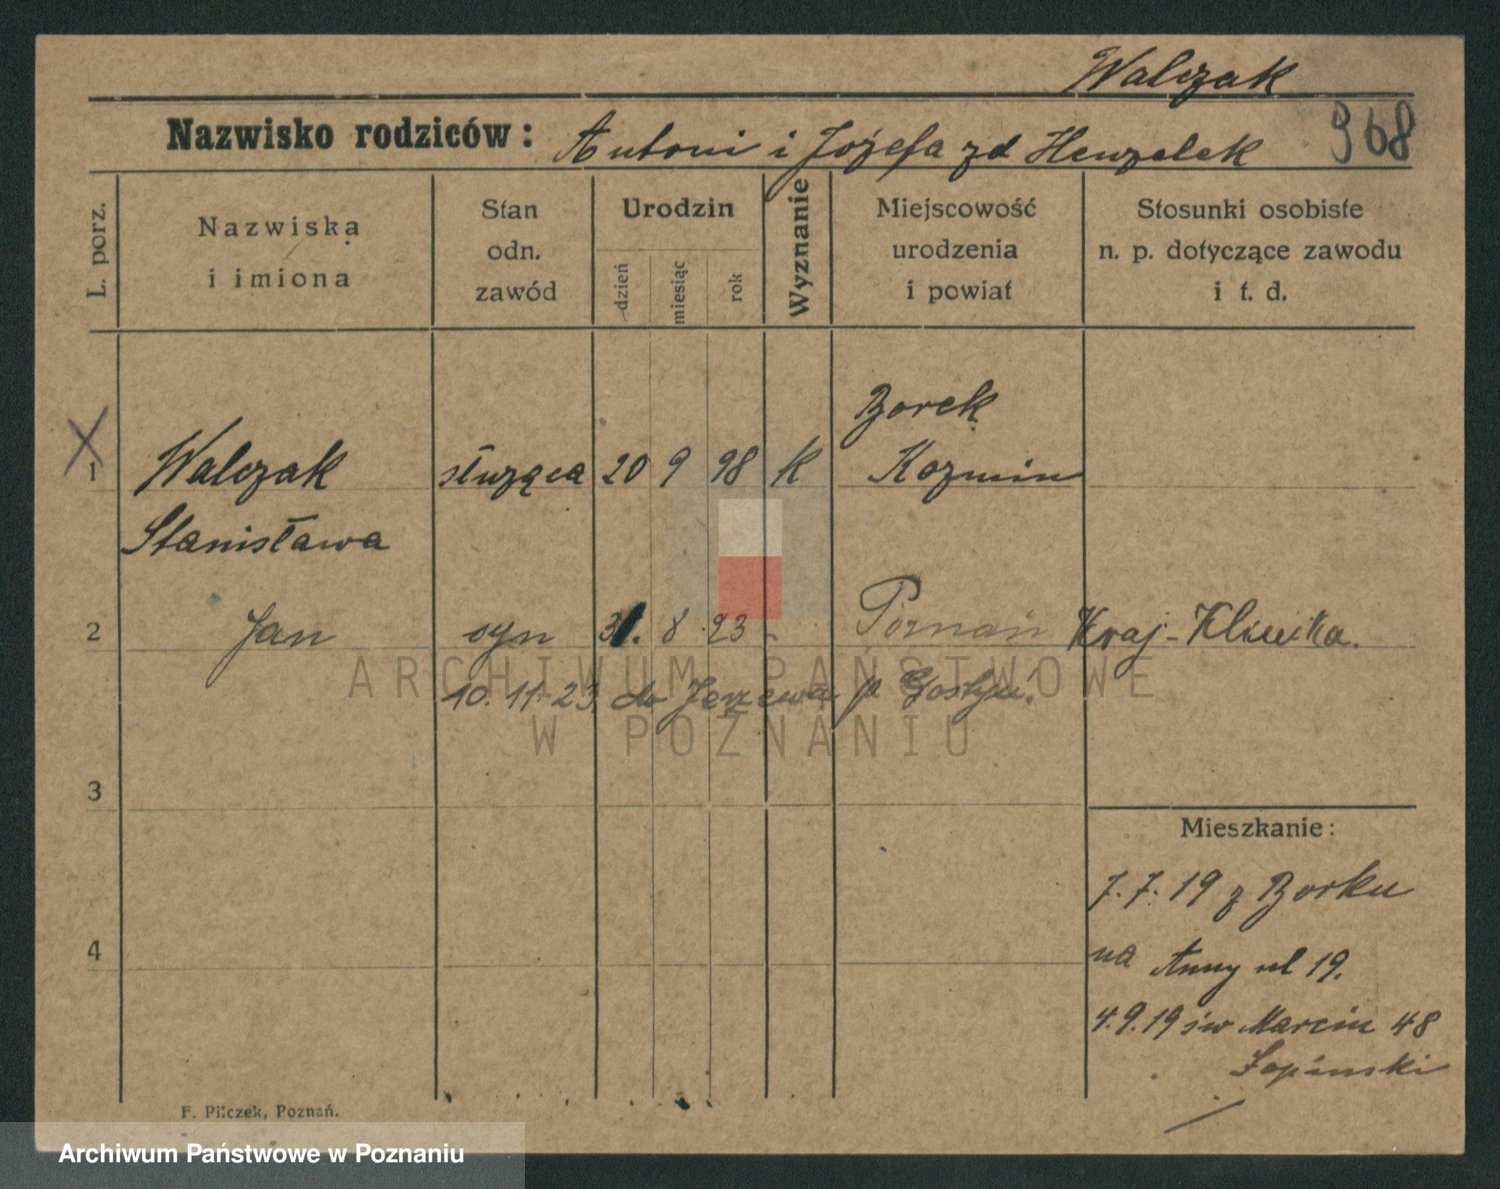 Walczak
Nazwisko rodziców: Antoni i Józefa zd Henzelek 968
L. porz.
Nazwiska
i imiona
Stan
odn.
zawód
Urodzin
dzień
miesiąc
rok
Wyznanie
Miejscowość
urodzenia
i powiat
Stosunki osobiste
n. p. dotyczące zawodu
i t. d.
Borek
X
1 Walczak służąca 20 9 98 K Kozmin
Stanisława
2 Jan syn 31. 8 23 Poznań Kraj-Klinika.
10. 11. 23 do Jerzewa p. Gostyń.
ARCHIWUM PAŃSTWOWE
W POZNANIU
3
Mieszkanie:
7. 7. 19 z Borku
4
na Anny ul 19.
4. 9. 19 św Marcin 48
Łopinski
F. Pilczek, Poznań.
Archiwum Państwowe w Poznaniu